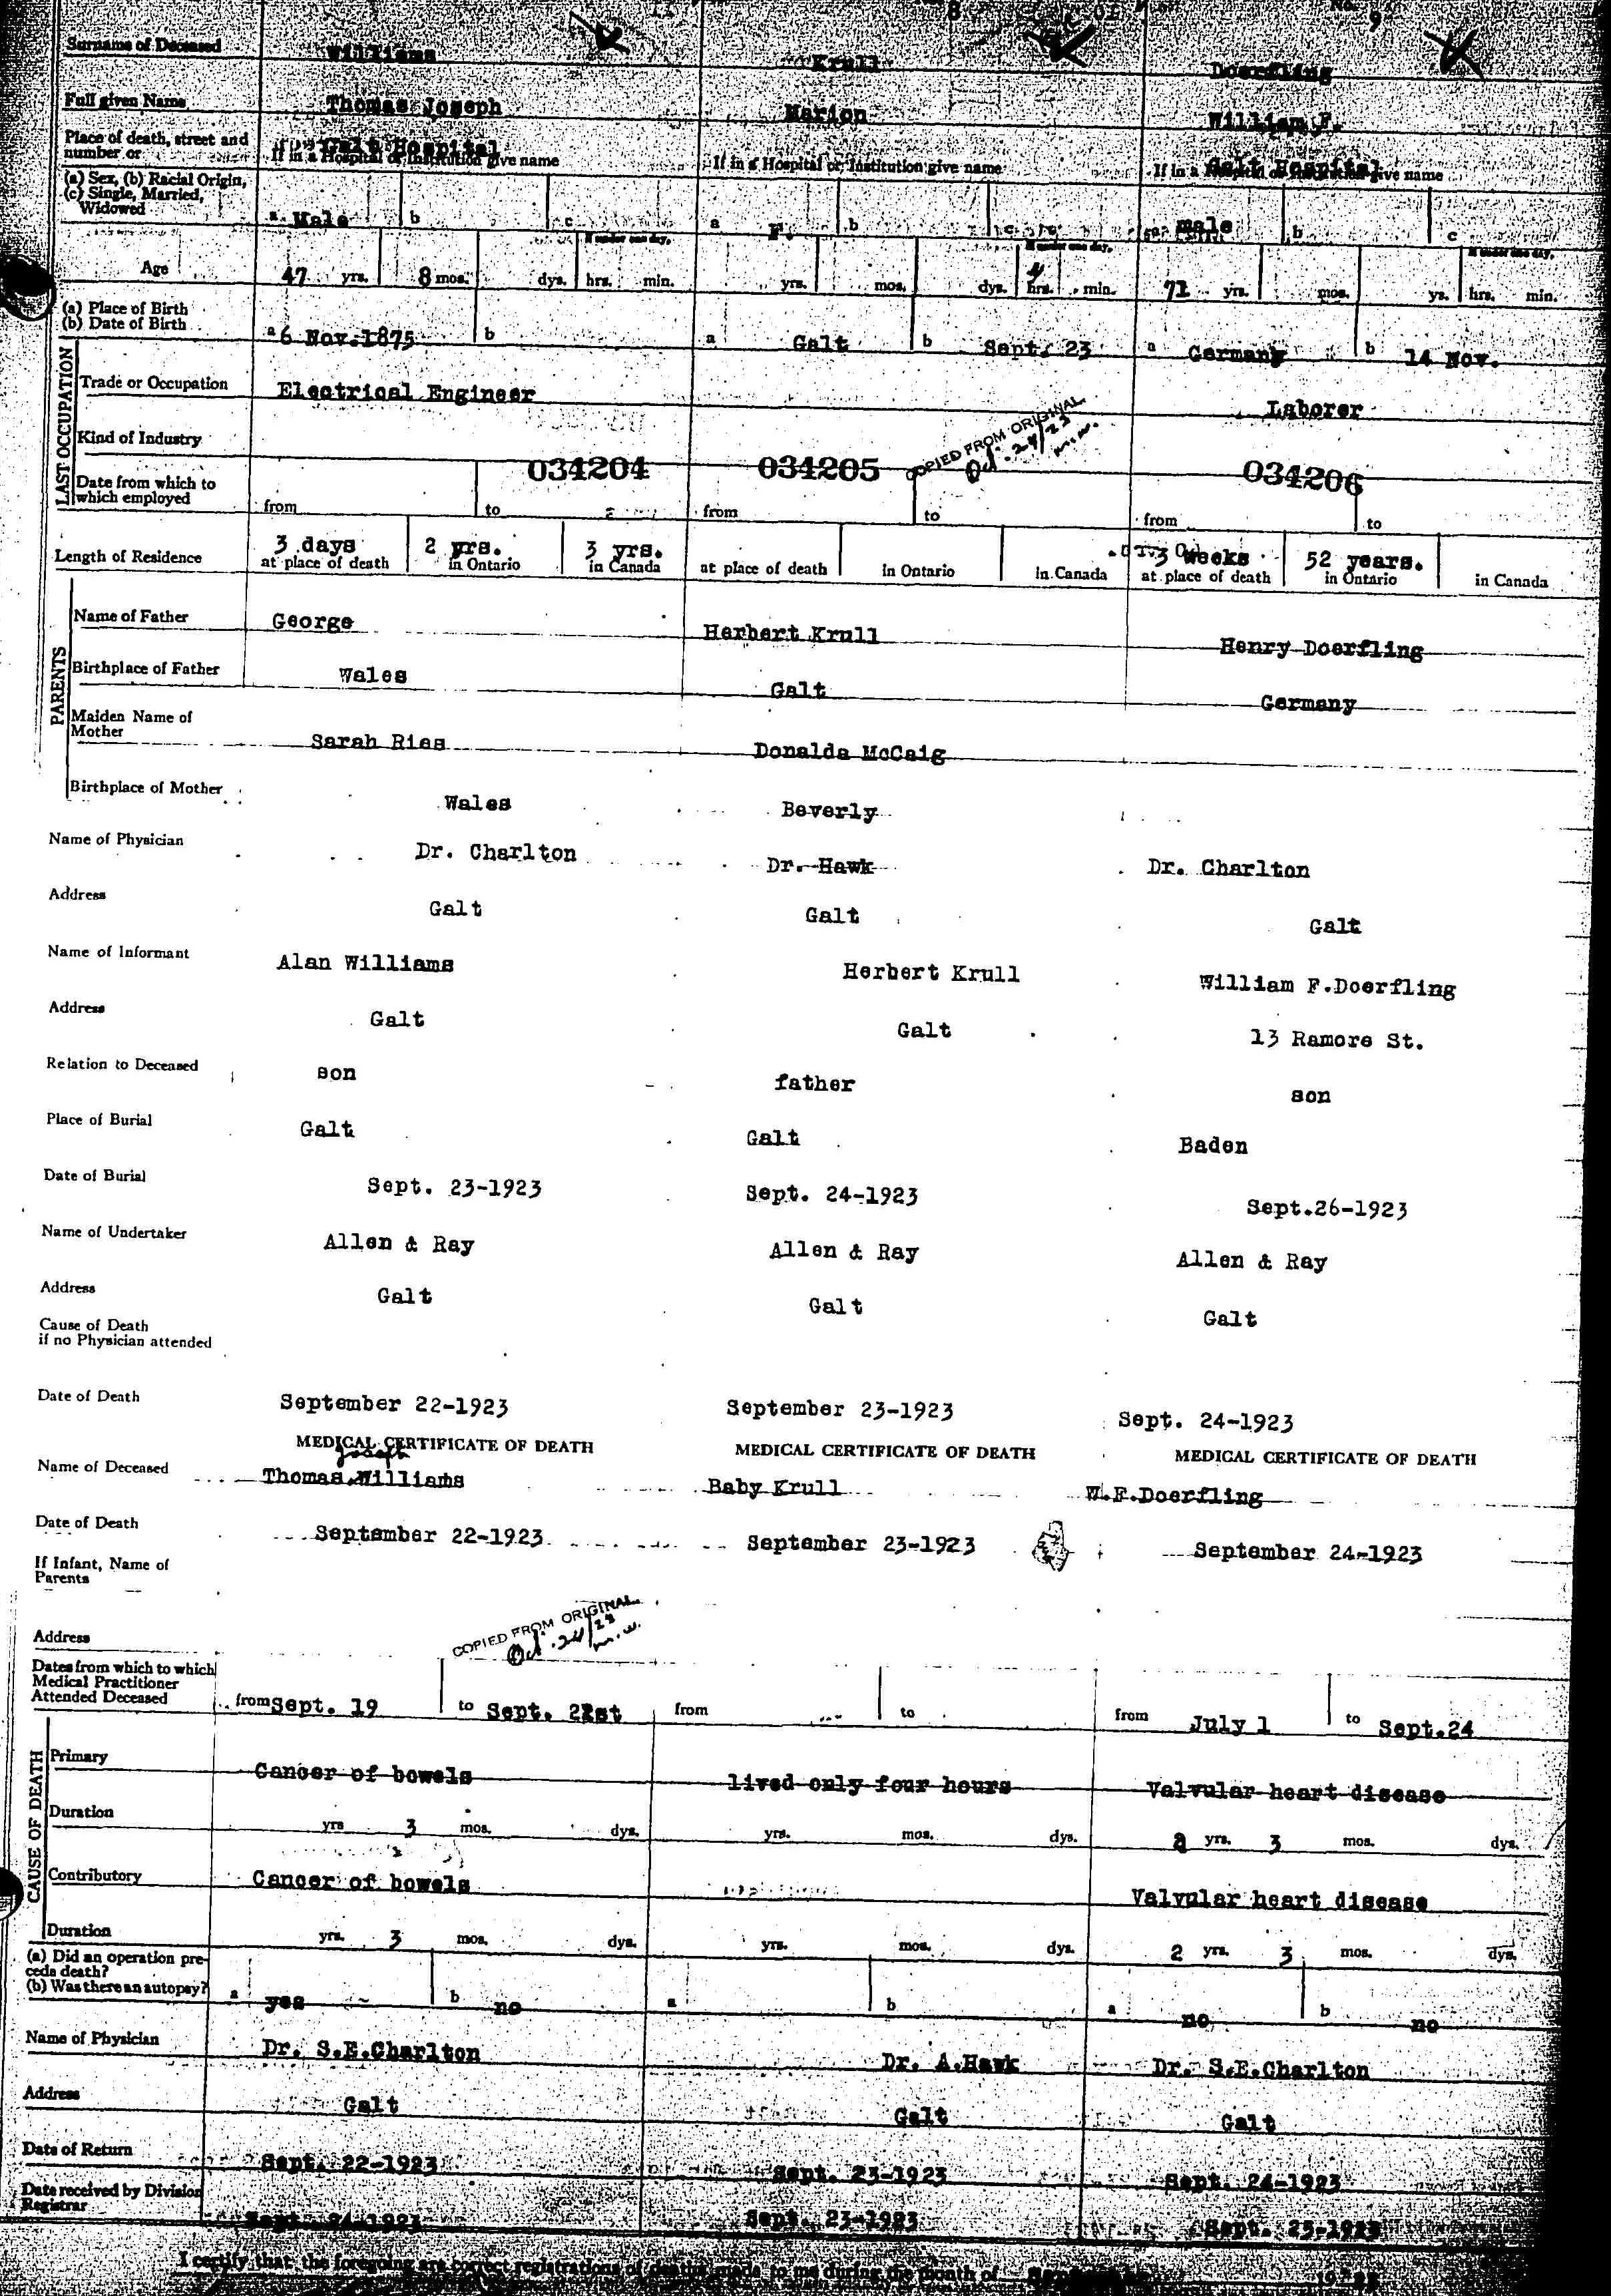 8 No. 9
Surname of Deceased Williams Krull Doerfling
Full given Name Thomas Joseph Marion William F.
Place of death, street and
number or Galt Hospital Galt Hospital
If in a Hospital or Institution give name If in a Hospital or Institution give name If in a Hospital or Institution give name
(a) Sex, (b) Racial Origin,
(c) Single, Married,
Widowed a Male b c a F. b c a male b c
If under one day, If under one day, If under one day,
Age 47 yrs. 8 mos. dys. hrs. min. yrs. mos. dys. 4 hrs. min. 71 yrs. mos. ys. hrs. min.
(a) Place of Birth
(b) Date of Birth a 6 Nov. 1875 b a Galt b Sept. 23 a Germany b 14 Nov.
LAST OCCUPATION
Trade or Occupation Electrical Engineer Laborer
Kind of Industry COPIED FROM ORIGINAL
Oct. 24/23
m.w.
034204 034205 034206
Date from which to
which employed from to from to from to
Length of Residence 3 days 2 yrs. 3 yrs. 3 weeks 52 years.
at place of death in Ontario in Canada at place of death in Ontario in Canada at place of death in Ontario in Canada
PARENTS
Name of Father George Herbert Krull Henry Doerfling
Birthplace of Father Wales Galt Germany
Maiden Name of
Mother Sarah Ries Donalda McCaig
Birthplace of Mother Wales Beverly
Name of Physician Dr. Charlton Dr. Hawk Dr. Charlton
Address Galt Galt Galt
Name of Informant Alan Williams Herbert Krull William F.Doerfling
Address Galt Galt 13 Ramore St.
Relation to Deceased son father son
Place of Burial Galt Galt Baden
Date of Burial Sept. 23-1923 Sept. 24-1923 Sept.26-1923
Name of Undertaker Allen & Ray Allen & Ray Allen & Ray
Address Galt Galt Galt
Cause of Death
if no Physician attended
Date of Death September 22-1923 September 23-1923 Sept. 24-1923
MEDICAL CERTIFICATE OF DEATH MEDICAL CERTIFICATE OF DEATH MEDICAL CERTIFICATE OF DEATH
Joseph
Name of Deceased Thomas.Williams Baby Krull W.F.Doerfling
Date of Death September 22-1923 September 23-1923 September 24-1923
If Infant, Name of
Parents
COPIED FROM ORIGINAL
Oct. 24/23
m.w.
Address
Dates from which to which
Medical Practitioner
Attended Deceased from Sept. 19 to Sept. from to from July 1 to Sept.24
CAUSE OF DEATH
Primary Cancer of bowels lived only four hours Valvular heart disease
Duration yrs 3 mos. dys. yrs. mos. dys. 2 yrs. 3 mos. dys.
Contributory Cancer of bowels Valvular heart disease
Duration yrs. 3 mos. dys. yrs. mos. dys. 2 yrs. 3 mos. dys.
(a) Did an operation pre-
cede death?
(b) Was there an autopsy? a yes b no a b a no b no
Name of Physician Dr. S.E.Charlton Dr. A.Hawk Dr. S.E.Charlton
Address Galt Galt Galt
Date of Return Sept. 22-1923 Sept. 23-1923 Sept. 24-1923
Date received by Division
Registrar Sept. 24-1923 Sept. 23-1923 Sept. 25-1923
I certify that the foregoing are correct registrations of deaths made to me during the month of